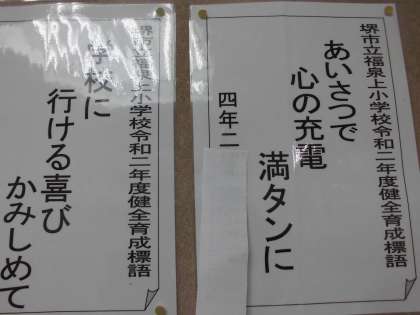 堺市立福泉上小学校令和二年度健全育成標語
あいさつで
心の充電
満タンに
四年二
堺市立福泉上小学校令和二年度健全育成標語
学校に
行ける喜び
かみしめて